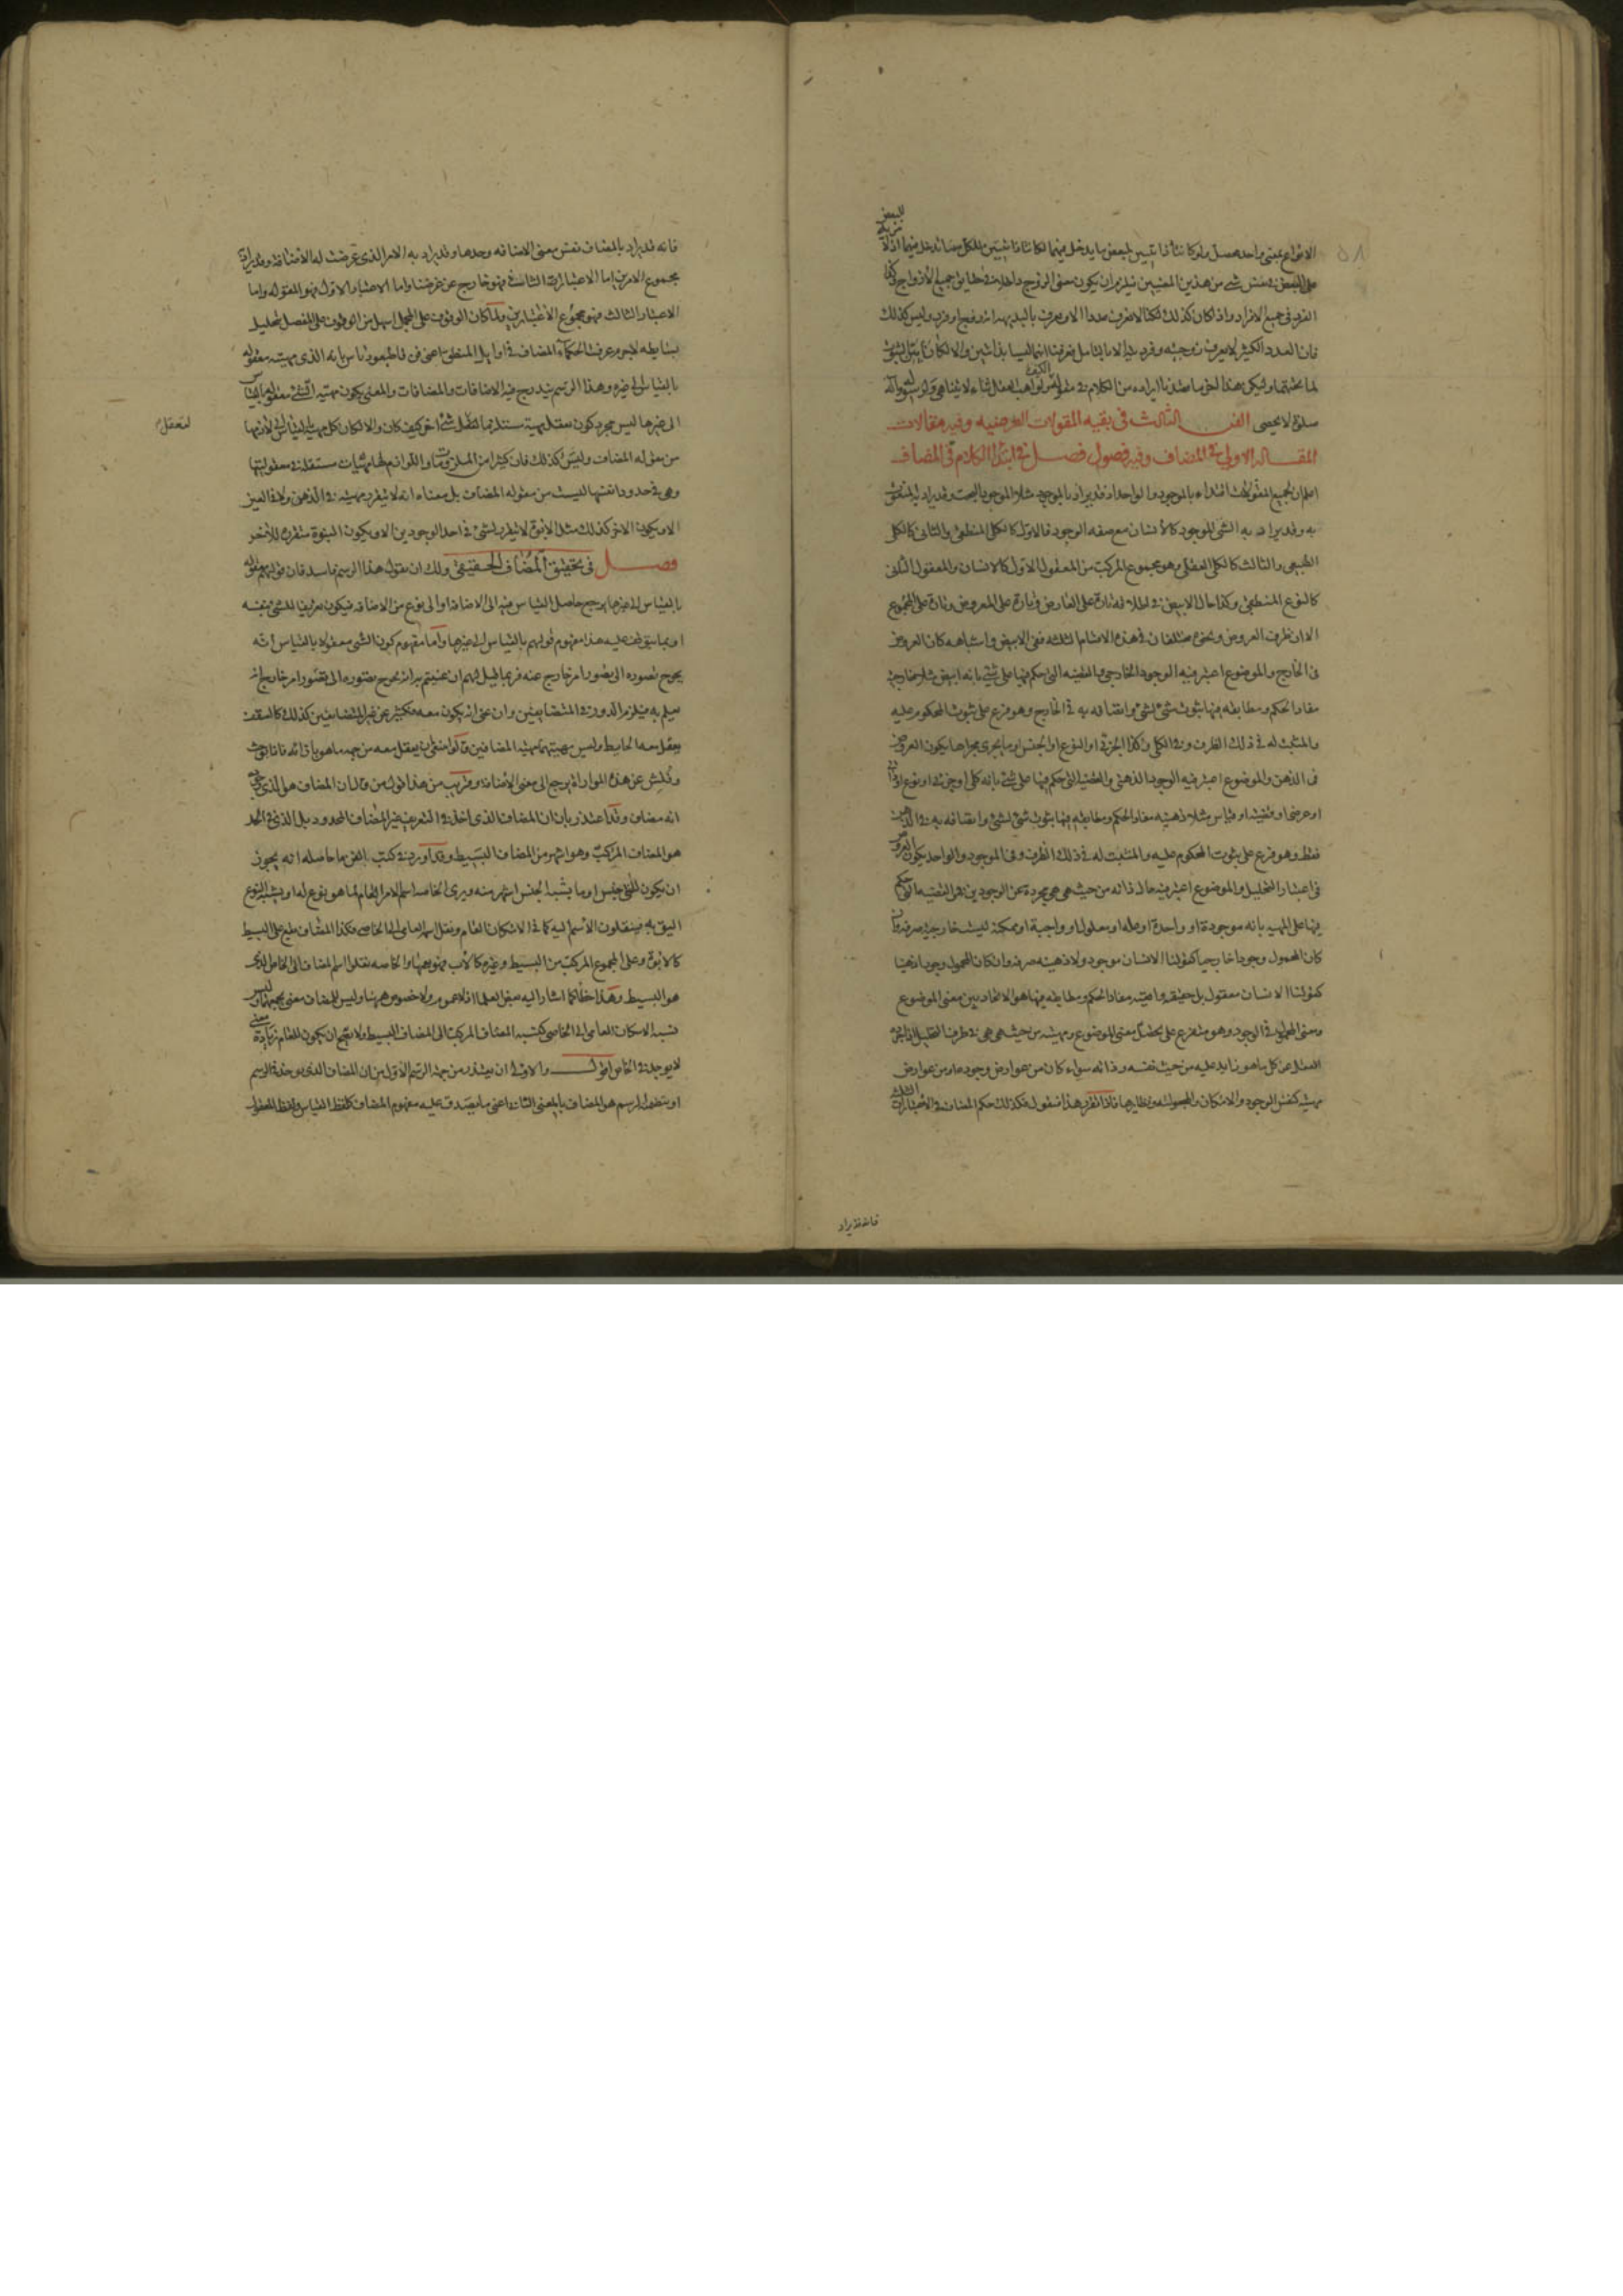 للبعض
الانواع بمعنى واحد محصل ولو كانتا ذاتيتين لبعض ما يدخل فيهما لكانتا ذاتيتين للكل
على البعض في نفس شيء من هذين المعنيين فيلزم ان يكون معنى الزوج داخلا في حقايق جميع الازواج وكذا
الفرد في جميع الافراد واذا كان كذلك لكنا لا نعرف عددا الا ونعرف بالبديهة انه زوج او فرد وليس كذلك
فان العدد الكثير لا يعرف زوجيته وفرديته الا بالتامل فعرفنا انهما ليسا بذاتيين والا لكان
لما تحتهما وليكن هذا اخر ما قصدنا ايراده من الكلام في مقولة الكيف ولواهب العقل ثناء لا يتناهى ولرسوله وآله
صلوة لا تحصى الفن الثالث في بقيه المقولات العرضيه وفيه مقالات
المقالة الاولى في المضاف وفيه فصول فصل في ابتداء الكلام في المضاف
اعلم ان لجميع المقولات ابتداء بالموجود والواحد اذ قد يراد بالموجود مثلا الموجود البحت وقد يراد
به وقد يراد به الشيء الموجود كالانسان مع صفه الوجود فالاول كالكلي المنطقي والثاني كالكلي
الطبيعي والثالث كالكلي العقلي وهو مجموع المركب من المعقول الاول كالانسان والمعقول الثاني
كالنوع المنطقي وكذا حال الابيض في اطلاقه تارة على العارض وتارة على المعروض وتارة على المجموع
الا ان ظرف العروض ونحوه مختلفان في هذه الاقسام الثلثه ففي الابيض واشباهه كان العروض
في الخارج والموضوع اعتبر فيه الوجود الخارجي والقضيه التي حكم فيها على شيء بانه ابيض مثلا خارجية
مفاد الحكم ومطابقه فيها ثبوت شيء لشيء واتصافه به في الخارج وهو فرع على ثبوت المحكوم عليه
والمثبت له في ذلك الظرف وفي الكلي وكذا الجزئي او النوع او الجنس او ما يجري مجراها يكون العروض
في الذهن والموضوع اعتبر فيه الوجود الذهني والقضية التي حكم فيها على شيء بانه كلي او جزئي او نوع او ذاتي
او عرضي او قضيه او قياس مثلا ذهنيه مفاد الحكم ومطابقه فيها ثبوت شيء لشيء واتصافه به في الذهن
فقط وهو فرع على ثبوت المحكوم عليه والمثبت له في ذلك الظرف وفي الموجود والواحد يكون العروض
في اعتبار التحليل والموضوع اعتبر فيه حال ذاته من حيث هي هي مجردة عن الوجودين ففي القضيه التي حكم
فيها على المهيه بانه موجودة او واحدة او علة او معلول او واجبة او ممكنة ليست خارجية صرفة وان
كان المحمول وجودا خارجيا كقولنا الانسان موجود ولا ذهنيه صرفه وان كان المحمول وجودا ذهنيا
كقولنا الانسان معقول بل حقيقيه واقعيه مفاد الحكم ومطابقه فيها هو الاتحاد بين معنى الموضوع
ومعنى المحمول في الوجود وهو متفرع على تحصل معنى الموضوع ومهيته من حيث هي هي في ظرف التحليل
العقل عن كل ما هو زايد عليه من حيث نفسه وذاته سواء كان من عوارض وجوده او من عوارض
مهيته كنفس الوجود والامكان والمجعوليه ونظايرها فاذا تقرر هذا فنقول فكذلك حكم المضاف في الاعتبارات الثلثة
فانه قد يراد
فانه قد يراد بالمضاف نفس معنى الاضافه وحدها وقد يراد به الامر الذي عرضت له الاضافة وقد يراد
مجموع الامرين اما الاعتبار الثاني فهو خارج عن غرضنا واما الاعتبار الاول فهو المقوله واما
الاعتبار الثالث فهو مجموع الاعتبارين ولما كان الوقوف على المجمل اسهل من الوقوف على المفصل لتحليل
بسايطه لا جرم عرفت الحكماء المضاف في اوايل المنطق اعني فن قاطيغورياس بانه الذي مهيته معقوله
بالقياس الى غيره وهذا الرسم يندرج فيه الاضافات والمضافات والمعني بكون مهية الشيء معقولة بالقياس
الى غيرها ليس مجرد كون تعقل مهية مستلزما لتعقل شيء آخر كيف كان والا لكان كل مهية بالقياس الى لازمها
لتعقل
من مقوله المضاف وليس كذلك فان كثيرا من الملزومات واللوازم لها مهيات مستقله في معقوليتها
وهي في حدود انفسها ليست من مقوله المضاف بل معناه انه لا يتقرر مهيته في الذهن ولا في العين
الا ويكون الاخر كذلك مثل الابوة لا يتقرر لشيء في احد الوجودين الا ويكون البنوة متقررة للاخر
فصل في تحقيق المضاف الحقيقي ولك ان تقول هذا الرسم فاسد فان قولهم معقوله
بالقياس الى غيرها يرجع حاصل القياس فيه الى الاضافة او الى نوع من الاضافه فيكون تعريفا للشيء بنفسه
او بما يتوقف عليه هذا مفهوم قولهم بالقياس الى غيرها واما مفهوم كون الشيء معقولا بالقياس انه
يحوج تصوره الى تصور امر خارج عنه فربما قيل لهم ان عنيتم به انه يحوج تصوره الى تصور امر خارج ان
يعلم به فيلزم الدور في المتضايفين وان عنى انه يكون معه فكثير من غير المتضايفين كذلك كالسقف
يعقل معه الحايط وليس مهيتهما مهية المضافين
وفتش عن هذه الموازاة يرجع الى معنى الاضافة وقريب من هذا قول من قال ان المضاف هو الذي
انه مضاف وقد اعتذر بان المضاف الذي اخذ في التعريف غير المضاف المحدود بل الذي في الحد
هو المضاف المركب وهو اشهر من المضاف البسيط وقد اورد في كتب الفن ما حاصله انه يجوز
ان يكون للشيء جنس او ما يشبه الجنس اشهر منه ويرى الخاصه اسم الامر العام لما هو نوع له او يشبه النوع
اليق به فينقلون الاسم اليه كما في الامكان العام ونقل اسم العامي الى الخاصي فكذا المضاف يقع على البسيط
كالابوة وعلى المجموع المركب من البسيط وغيره كالاب فهو يعمهما والخاصه نقلوا اسم المضاف الى الخاص الذي
هو البسيط وهذا خطا كما اشار اليه بعض العلماء اذ لا عموم ولا خصوص ههنا وليس للمضاف معنى يجمعهما وليس
نسبه الامكان العامي الى الخاصي كنسبه المضاف المركب الى المضاف البسيط ولا يصح ان يكون للعام زيادة معنى
لا يوجد في الخاص اقول والاولى ان يعتذر من جهة الرسم الاول من ان المضاف الذي يوخذ في الرسم
او يتضمنه الرسم هو المضاف بالمعنى الثاني اعني ما يصدق عليه مفهوم المضاف كلفظ القياس ولفظ المعقول